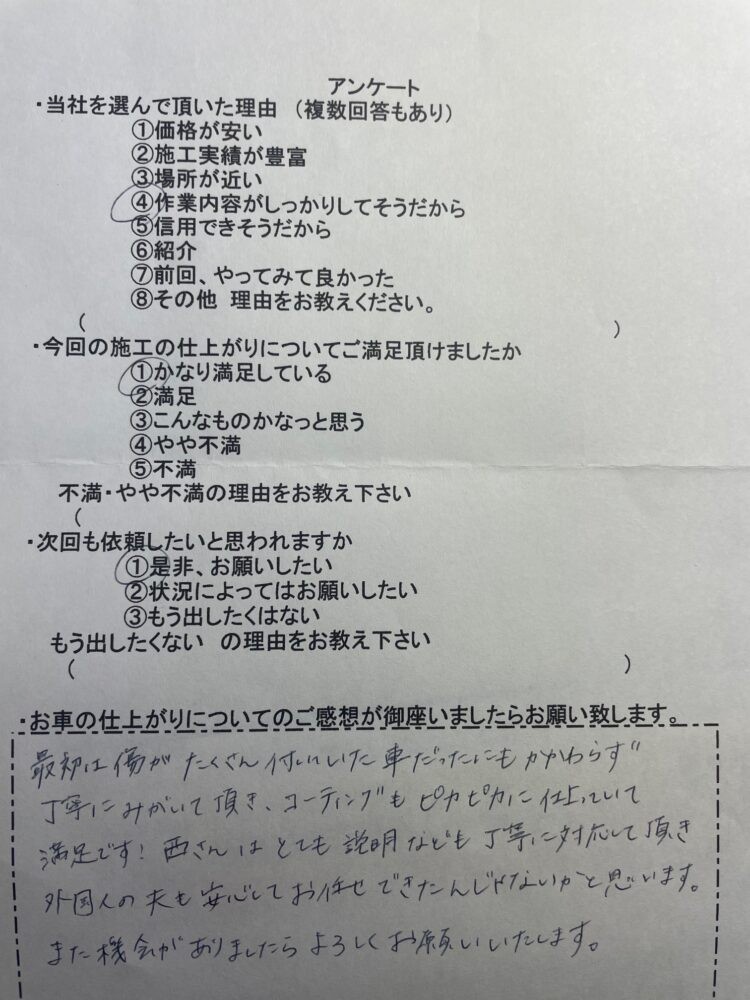 アンケート
・当社を選んで頂いた理由 （複数回答もあり）
①価格が安い
②施工実績が豊富
③場所が近い
④作業内容がしっかりしてそうだから
⑤信用できそうだから
⑥紹介
⑦前回、やってみて良かった
⑧その他 理由をお教えください。
( )
・今回の施工の仕上がりについてご満足頂けましたか
①かなり満足している
②満足
③こんなものかなっと思う
④やや不満
⑤不満
不満・やや不満の理由をお教え下さい
(
・次回も依頼したいと思われますか
①是非、お願いしたい
②状況によってはお願いしたい
③もう出したくはない
もう出したくない の理由をお教え下さい
( )
・お車の仕上がりについてのご感想が御座いましたらお願い致します。
最初は傷がたくさん付いていた車だったにもかかわらず
丁寧にみがいて頂き、コーティングもピカピカに仕上っていて
満足です！西さんはとても説明なども丁寧に対応して頂き
外国人の夫も安心してお任せできたんじゃないかと思います。
また機会がありましたらよろしくお願いいたします。